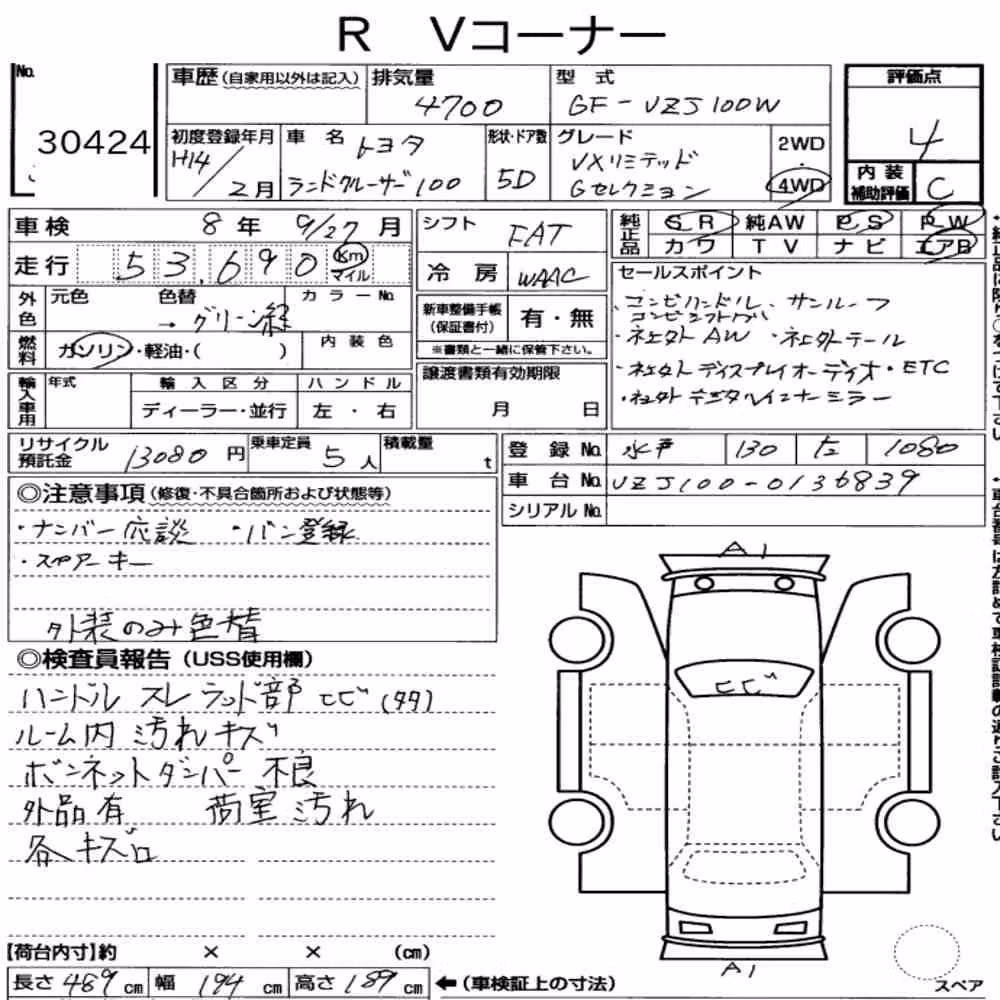 R Vコーナー
No.
30424
車歴 (自家用以外は記入) 排気量 4700 型式 GF-VZJ100W
初度登録年月 H14/2月 車名 トヨタ ランドクルーザー100
形状・ドア数 5D グレード VXリミテッド Gセレクション
2WD ・ 4WD
評価点 4
内装補助評価 C
車検 8年 9/27月
走行 53,690 Km マイル
シフト FAT
冷房 WAAC
純正品 SR 純AW PS PW
カワ TV ナビ エアB
外色 元色 色替 → グリーン緑 カラーNo
燃料 ガソリン・軽油・( ) 内装色
新車整備手帳 (保証書付) 有・無
※書類と一緒に保管下さい。
セールスポイント
・コンビハンドル ・サンルーフ
コンビシフトノブ
・社外AW ・社外テール
・社外ディスプレイオーディオ・ETC
・社外デジタルインナーミラー
輸入車用 年式 輸入区分 ハンドル
ディーラー・並行 左・右
譲渡書類有効期限
月 日
リサイクル預託金 13080円 乗車定員 5人 積載量 t
登録No. 水戸 130 1080
車台No. VZJ100-0136839
シリアルNo.
◎注意事項 (修復・不具合箇所および状態等)
・ナンバー応談 ・バン登録
・スペアーキー
外装のみ色替
◎検査員報告 (USS使用欄)
ハンドル スレ ラッド部 ヒビ (タタ)
ルーム内 汚れキズ
ボンネットダンパー 不良
外品有 荷室汚れ
各キズ
A1
ヒビ
A1
スペア
【荷台内寸】約 × × (cm)
長さ 489 cm 幅 194 cm 高さ 189 cm ←(車検証上の寸法)